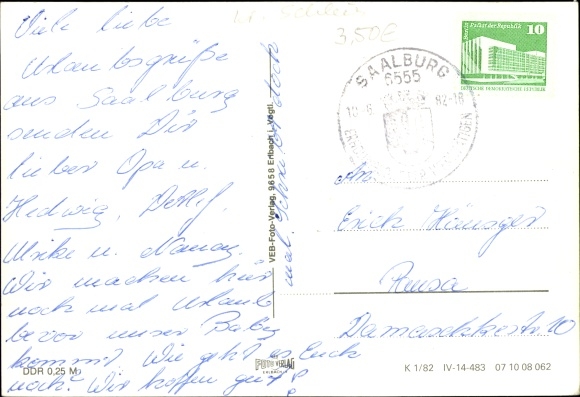 Viele liebe
Urlaubsgrüße
aus Saalburg
senden Dir
lieber Opa u.
Hedwig, Detlef,
Ulrike u. Nancy.
Wir machen hier
noch mal Urlaub
bevor unser Baby
kommt. Wie geht es Euch
noch? Wir hoffen gut?
mal. Schreibt doch
3,50€
Berlin Palast der Republik
10
DEUTSCHE DEMOKRATISCHE REPUBLIK
SAALBURG
6555
82-18
An
Erich
Damaschkestr. 20
VEB-Foto-Verlag, 9658 Erlbach i. Vogtl.
FOTO VERLAG
ERLBACH
DDR 0,25 M
K 1/82 IV-14-483 07 10 08 062